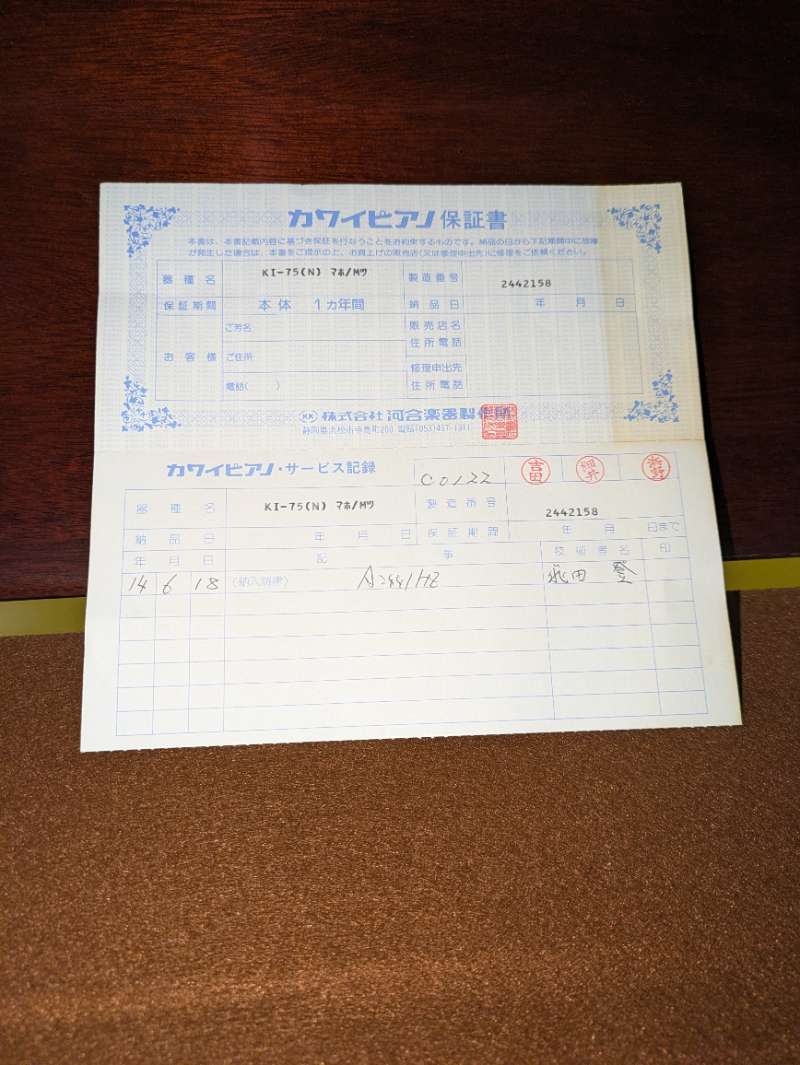 カワイピアノ保証書
本書は、本書記載内容に基づき保証を行なうことをお約束するものです。納品の日から下記期間中に故障
が発生した場合は、本書をご提示の上、お買上げの販売店(又は修理申出先)に修理をご依頼ください。
器種名 KI-75(N) マホ/Mツ 製造番号 2442158
保証期間 本体 1カ年間 納品日 年 月 日
お客様 ご芳名 販売店名
住所電話
ご住所
修理申出先
電話( ) 住所電話
株式会社 河合楽器製作所
静岡県浜松市寺島町200 電話(053)457-1311
カワイピアノ・サービス記録 C0122 吉田 細井
器種名 KI-75(N) マホ/Mツ 製造番号 2442158
納品日 年 月 日 保証期限 年 月 日まで
年 月 日 記事 技術者名 印
14 6 18 (納入調律) A=441HZ 登